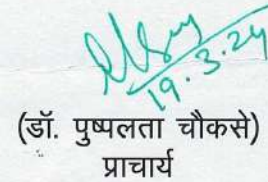 19.3.24
(डॉ. पुष्पलता चौकसे)
प्राचार्य